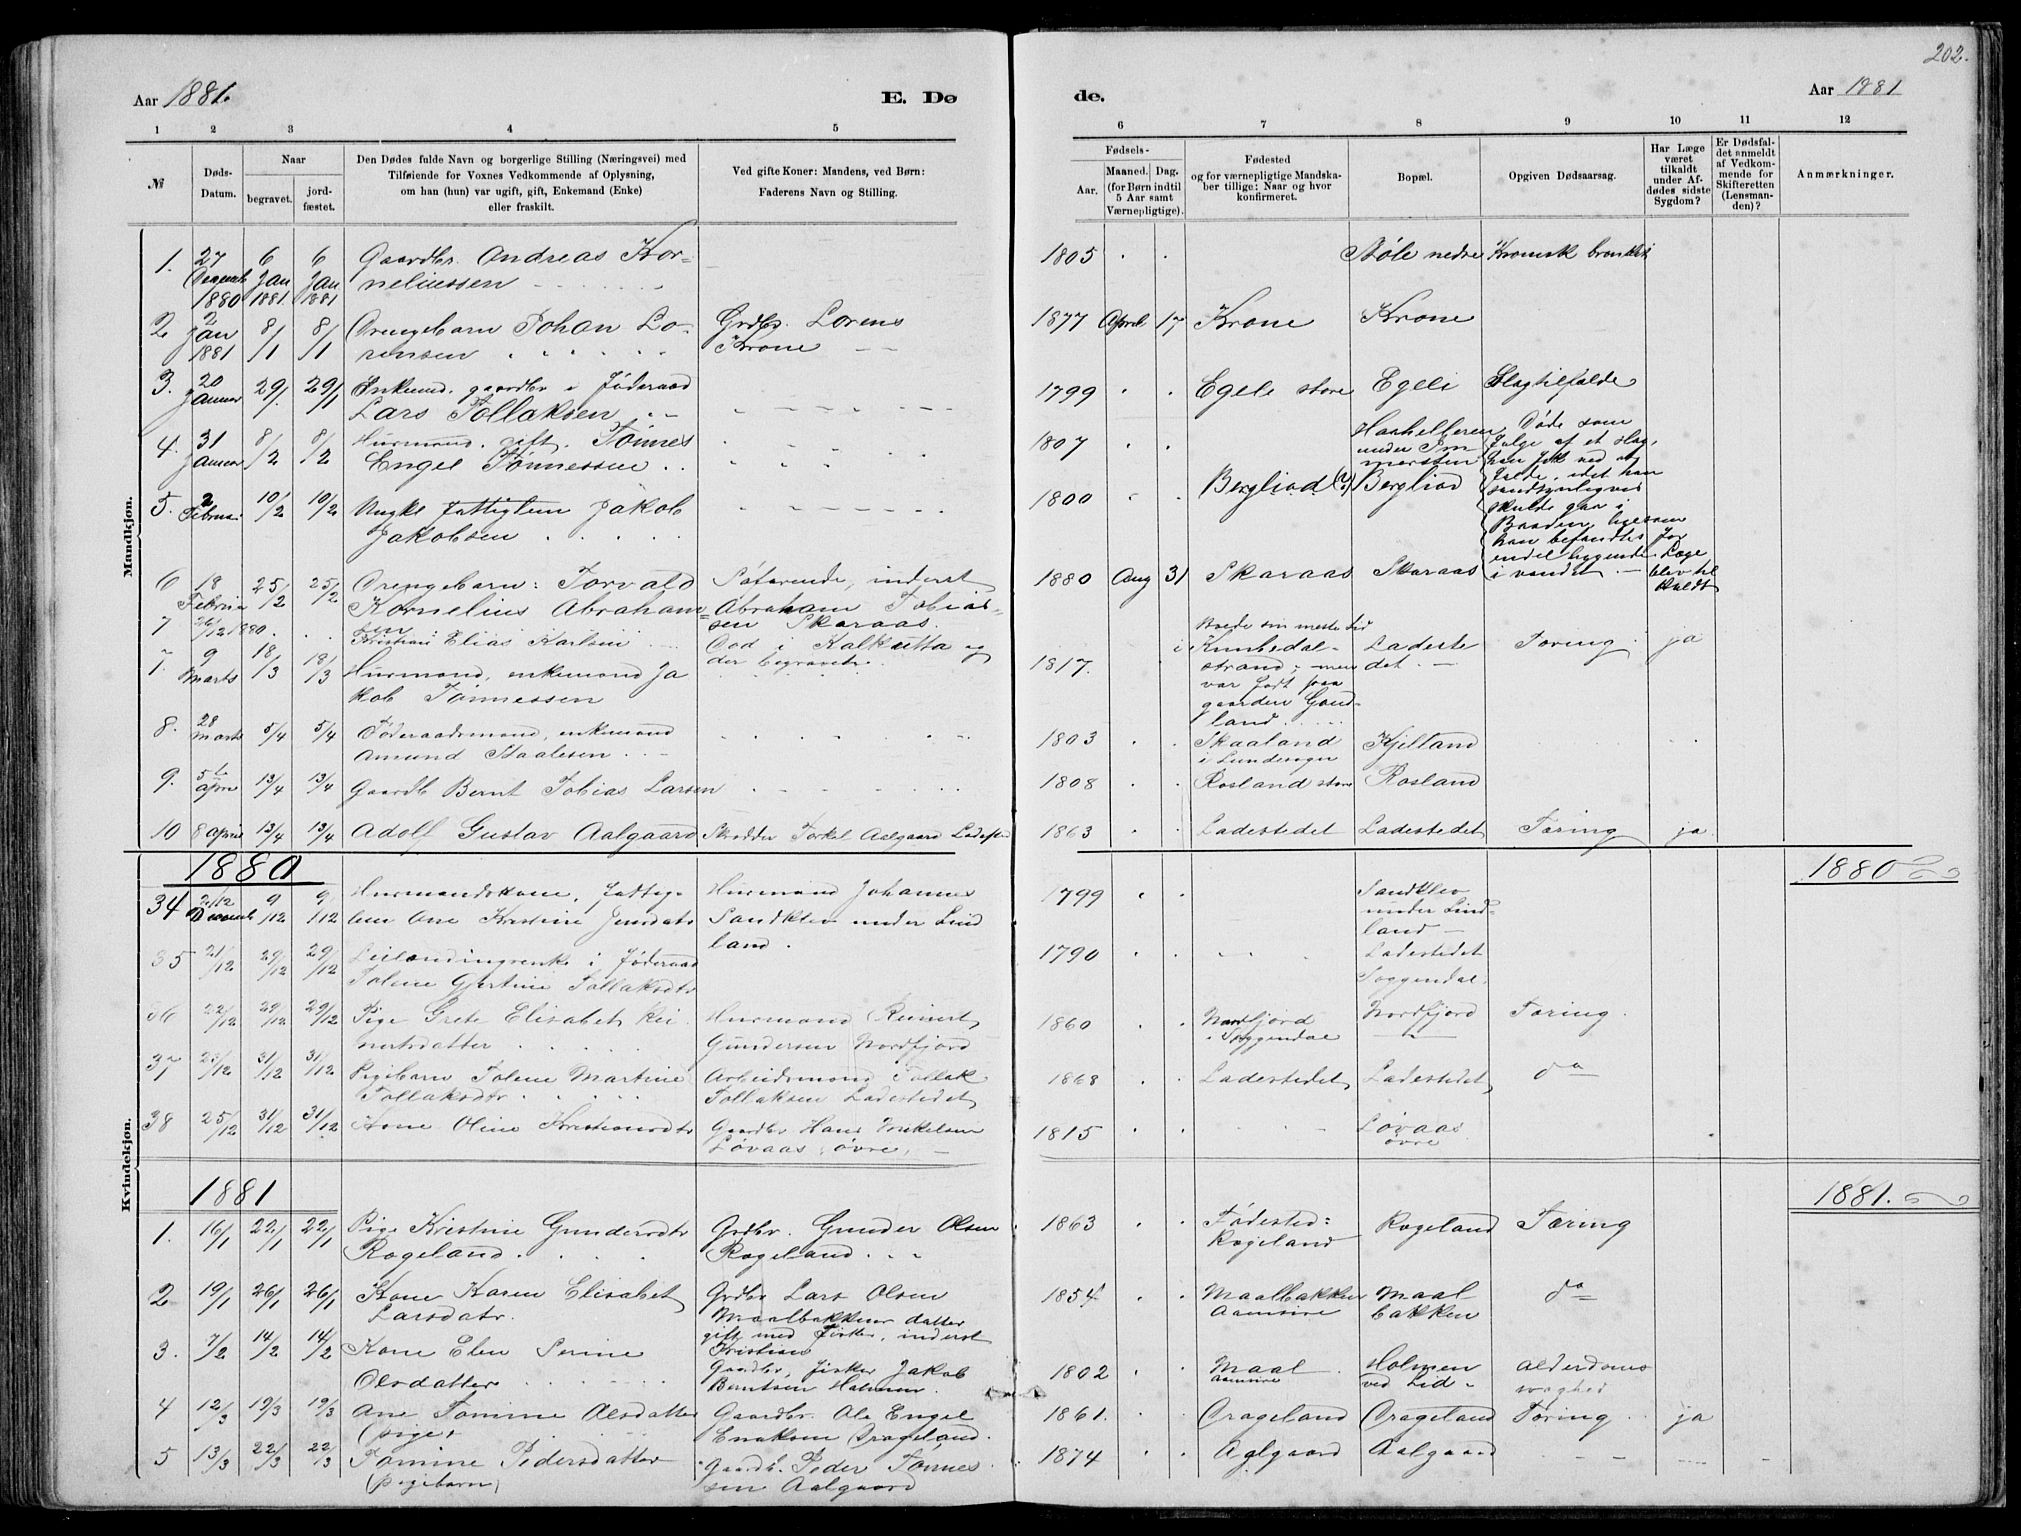 202.
Aar 1881.
E. Dø
de.
Aar 1881
1 2 3 4 5
6 7 8 9 10 11 12
№
Døds-
Datum.
Naar
begravet.
jord-
fæstet.
Den Dødes fulde Navn og borgerlige Stilling (Næringsvei) med
Tilføiende for Voxnes Vedkommende af Oplysning,
om han (hun) var ugift, gift, Enkemand (Enke)
eller fraskilt.
Ved gifte Koner: Mandens, ved Børn:
Faderens Navn og Stilling.
Fødsels-
Aar.
Maaned. Dag.
(for Børn indtil
5 Aar samt
Værnepligtige).
Fødested
og for værnepligtige Mandska-
ber tillige: Naar og hvor
konfirmeret.
Bopæl.
Opgiven Dødsaarsag.
Har Læge
været
tilkaldt
under Af-
dødes sidste
Sygdom?
Er Dødsfal-
det anmeldt
af Vedkom-
mende for
Skifteretten
(Lensman-
den)?
Anmærkninger.
Mandkjøn.
1. 27 6 6 Gaardbr. Andreas Kor-
Decemb Jan Jan neliussen
1880 1881 1881
1805 Støle nedre Kronisk bronkit
2 2 8/1 8/1 Drengebarn Johan Lo- Grdbr. Lorens
Jan 1881 rensen Krone
1877 April 17 Krone Krone
3. 20 29/1 29/1 Enkemd. gaardbr i Føderaad
Januar Lars Tollaksen
1799 Egele store Egeli Slagtilfælde
4. 31 8/2 8/2 Husmand. gift. Tønnes
Januar Engel Tønnessen
1807 under
Døde som
følge af et slag,
han fik ved at
falde, idet han
sandsynligvis
skulde gaa i
Baaden, ligesom
han befandtes
endel liggende
i vandet.
5. 2 10/2 10/2 Ungk. fattiglem Jakob
Februar Jakobsen
1800 Bergliad (?) Bergliad
6 18 25/2 25/2 Drengebarn: Torvald Søfarende, inderst
Februar Kornelius Abraham= Abraham Tobias-
sen sen Skaraas.
1880 Aug 31 Skaraas Skaraas
for
Læge
blev til
kaldt
7 26/12 1880 Kristian Elias Karlsen Død i Kalkutta og
der begravet.
7. 9 18/3 18/3 Husmand, enkemand Ja
Marts kob Tønnessen
1817. Boede sin meste tid
i Knubedal-
strand; men
var født paa
gaarden Gaud-
land
Ladeste
det. Tæring ja
8. 28 5/4 5/4 Føderaadsmand, enkemand
Marts Amund Staalesen
1803 Skaaland Kjelland
i Lundesogn
9. 5te 13/4 13/4 Gaardb Bernt Tobias Larsen
April
1808 Rosland store Rosland
10 8 April 13/4 13/4 Adolf Gustav Aalgaard Skrædder Torkel Aalgaard Ladested
1863 Ladestedet Ladestedet Tæring ja
Kvindekjøn.
1880
1880
34 2/12 9/12 9/12 Husmandskone, fattig- Husmand Johannes
Decemb lem Ane Kristine Jensdatr Sandklev under Lind
land.
1799 Sandklev
under Lind-
land
35 21/12 29/12 29/12 Leilændingsenke i Føderaad
Tolene Gjertine Tollaksdtr
1790 Ladestedet
Soggendal.
36 22/12 29/12 29/12 Pige Grete Elisabet Rei Husmand Reinert
nertsdatter Gundersen Nordfjord
1860 Nordfjord Nordfjord Tæring.
i Soggendal
37 31/12 31/12 Pigebarn Tolene Martine Arbeidsmand Tollak
Tollaksdtr Tollaksen Ladestedet
1868 Ladestedet Ladestedet do
38 25/12 31/12 31/12 Kone Oline Kristiansdtr Gaardbr Hans Mikelsen
Løvaas, øvre,
1815 Løvaas
øvre
1881
1881.
1. 16/1 22/1 22/1 Pige Kristine Gundersdtr Grdbr. Gunder Olsen
Rogeland. Rogeland.
1863 Fødested= Rogeland Tæring
Rogeland
2 19/1 26/1 26/1 Kone Karen Elisabet Grdbr Lars Olsen
Larsdatr. Maalbakkens datter
gift med Fisker, inderst
Kristian
1854 Maalbakken Maal do
Aamsire bakken
3. 7/2 14/2 14/2 Kone Elen Serine Gaardbr, fisker Jakob
Olsdatter Berntsen Holmen.
1802 Maal Holmen Alderdoms
Aamsire ved Lid svaghed
4 12/3 19/3 19/3 Ane Tomine Olsdatter Gaardbr. Ole Engel
(pige) Enoksen Drageland.
1861. Drageland Drageland Tæring ja
5 13/3 22/3 22/3 Tomine Pedersdatter Gaardb. Peder Tønnes
(pigebarn) sen Aalgaard
1874 Aalgaard Aalgaard